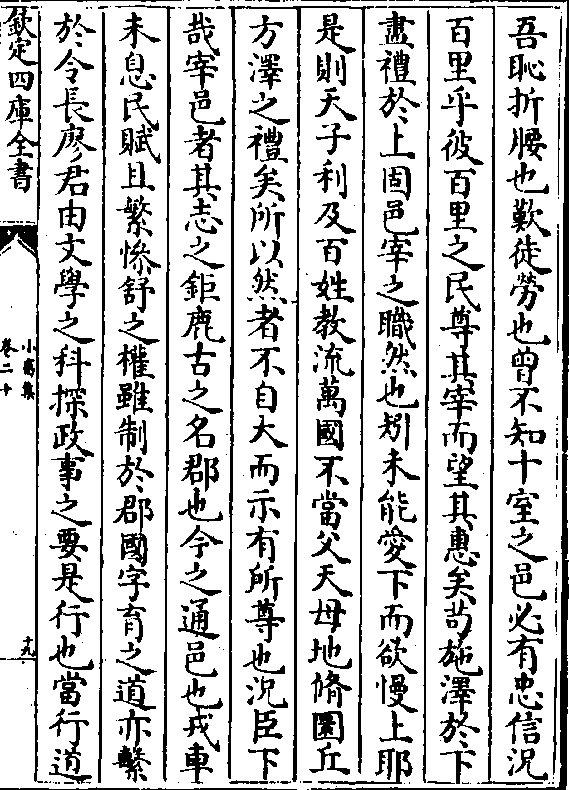 吾恥折腰也歎徒勞也曾不知十室之邑必有忠信況
百里乎彼百里之民尊其宰而望其惠矣茍施澤於下
盡禮於上固邑宰之職然也矧未能愛下而欲慢上耶
是則天子利及百姓教流萬國不當父天母地脩圜丘
方澤之禮矣所以然者不自大而示有所尊也況臣下
哉宰邑者其志之鉅鹿古之名郡也今之通邑也戎車
未息民賦且繁慘舒之權雖制於郡國字育之道亦繫
於令長廖君由文學之科探政事之要是行也當行道
欽定四庫全書
小畜集
卷二十
十九